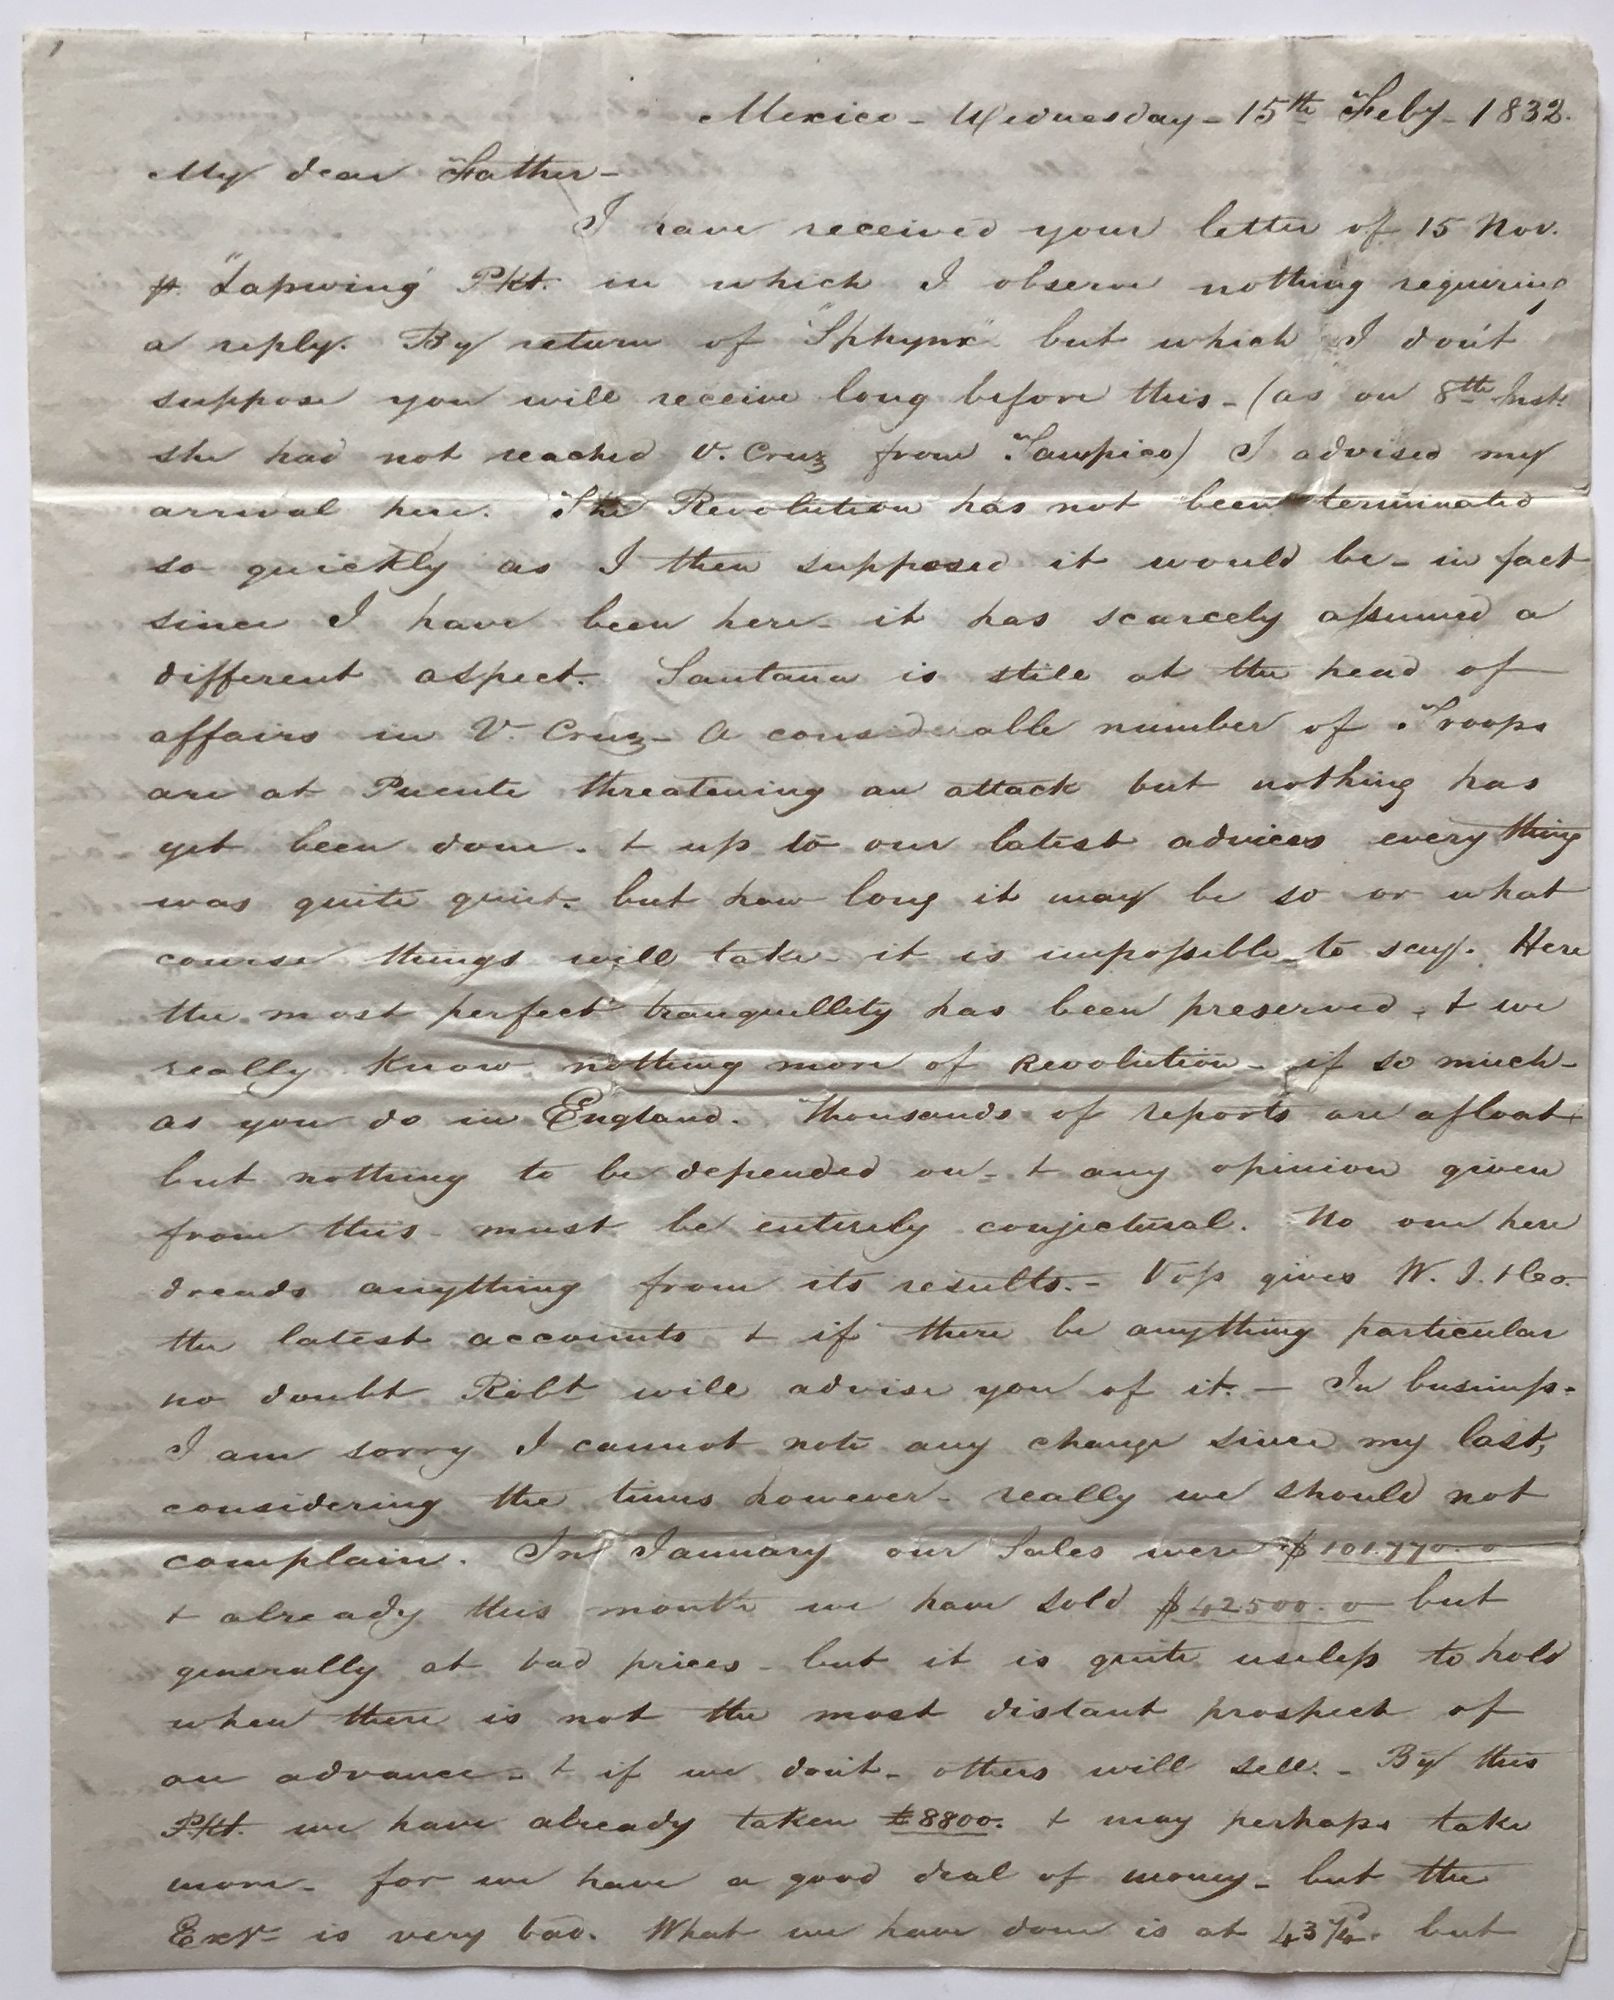 Mexico - Wednesday - 15th Feby - 1832.
My dear Father -
I have received your letter of 15 Nov.
p. "Lapwing" Pkt. in which I observe nothing requiring
a reply. By return of "Sphynx" but which I don't
suppose you will receive long before this - (as on 8th Inst.
she had not reached V. Cruz from Tampico) I advised my
arrival here. The Revolution has not been terminated
so quickly as I then supposed it would be - in fact
since I have been here - it has scarcely assumed a
different aspect. Santana is still at the head of
affairs in V. Cruz - A considerable number of Troops
are at Puente threatening an attack but nothing has
yet been done - & up to our latest advices every thing
was quite quiet - but how long it may be so or what
course things will take - it is impossible to say. Here
the most perfect tranquillity has been preserved - & we
really know nothing more of Revolution - if so much -
as you do in England. Thousands of reports are afloat
but nothing to be depended on - & any opinion given
from this must be entirely conjectural. No one here
dreads anything from its results. - Voss gives W. J. & Co.
the latest accounts & if there be anything particular
no doubt Robt will advise you of it. - In business -
I am sorry I cannot note any change since my last,
considering the times however - really we should not
complain. In January our Sales were $101.770.0
& already this month we have sold $42500.0 but
generally at bad prices - but it is quite useless to hold
when there is not the most distant prospect of
an advance - & if we don't - others will sell. - By this
Pkt. we have already taken £8800. & may perhaps take
more - for we have a good deal of money - but the
Exx is very bad. What we have done is at 43 7/4d. but